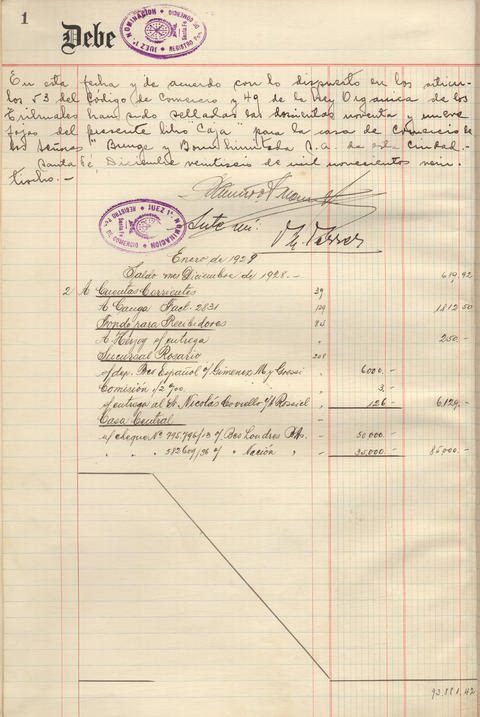 1
Debe
JUEZ 1ª. NOMINACION
REGISTRO Pco. DE COMERCIO
Santa Fe
En esta fecha y de acuerdo con lo dispuesto en los articu-
los 53 del Código de Comercio y 49 de la Ley Organica de los
Tribunales han sido selladas las doscientas noventa y nueve
fojas del presente libro "Caja" para la casa de Comercio de
los Señores "Bunge y Born Limitada S.A. de esta ciudad.-
Santa Fé, Diciembre veintiseis de mil novecientos vein-
tiocho.-
JUEZ 1ª. NOMINACION
REGISTRO Pco. DE COMERCIO
Santa Fe
Ante mi:
Enero de 1929
Saldo Diciembre de 1928.- 619,92
2 A Cuentas Corrientes 39
A Fact. 2831 129 1812 50
Fondo para Recibidores 84
A Herzog s/ entrega " 250.-
Sucursal Rosario 208
s/ dep. Bco Español o/ Gimenez M y Grossi 6000.-
Comisión " 3.-
s/ entrega al Sr. Nicolás o/ " 126.- 6.129.-
Casa Central -
s/ cheque Nº 795.796/13 o/ Bco Londres BAs. - 50.000.-
" " 582609/36 o/ " Nación " - 35.000.- 85000.-
93.881.42